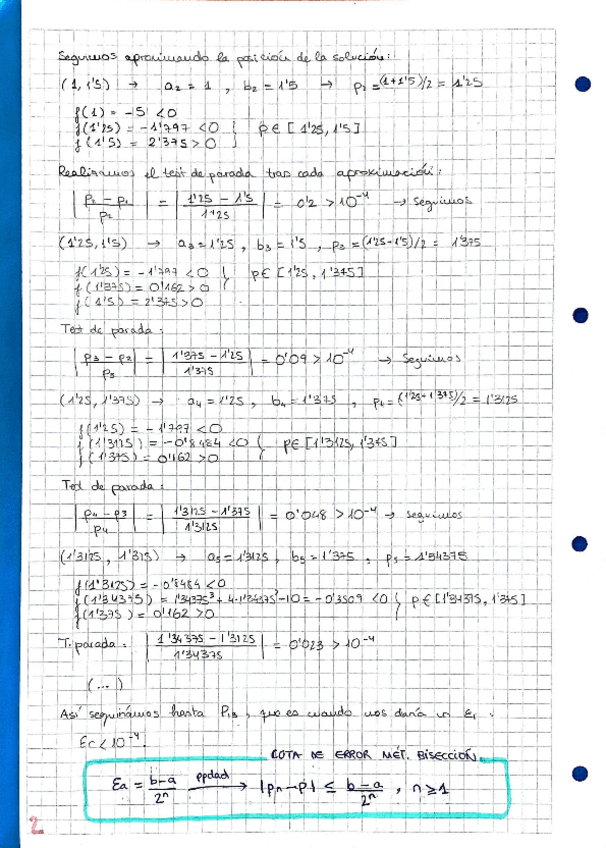 Seguimos aproximando la posición de la solución:
(1, 1'5) → a₂ = 1 , b₂ = 1'5 → p₂ = (1+1'5)/2 = 1'25
f(1) = -5 < 0
f(1'25) = -1'797 < 0 } p ∈ [1'25, 1'5]
f(1'5) = 2'375 > 0
Realizamos el test de parada tras cada aproximación:
|p₂ - p₁ / p₂| = |1'25 - 1'5 / 1'25| = 0'2 > 10⁻⁴ → Seguimos
(1'25, 1'5) → a₃ = 1'25 , b₃ = 1'5 , p₃ = (1'25-1'5)/2 = 1'375
f(1'25) = -1'797 < 0
f(1'375) = 0'162 > 0 } p ∈ [1'25, 1'375]
f(1'5) = 2'375 > 0
Test de parada:
|p₃ - p₂ / p₃| = |1'375 - 1'25 / 1'375| = 0'09 > 10⁻⁴ → Seguimos
(1'25, 1'375) → a₄ = 1'25 , b₄ = 1'375 , p₄ = (1'25+1'375)/2 = 1'3125
f(1'25) = -1'797 < 0
f(1'3125) = -0'8484 < 0 } p ∈ [1'3125, 1'375]
f(1'375) = 0'162 > 0
Test de parada:
|p₄ - p₃ / p₄| = |1'3125 - 1'375 / 1'3125| = 0'048 > 10⁻⁴ → seguimos
(1'3125, 1'375) → a₅ = 1'3125 , b₅ = 1'375 , p₅ = 1'34375
f(1'3125) = -0'8484 < 0
f(1'34375) = 1'34375³ + 4·1'34375² - 10 = -0'3509 < 0 } p ∈ [1'34375, 1'375]
f(1'375) = 0'162 > 0
T. parada: |1'34375 - 1'3125 / 1'34375| = 0'023 > 10⁻⁴
(...)
Así seguiríamos hasta P₁₃, que es cuando nos daría un Er.
Er < 10⁻⁴.
COTA DE ERROR MÉT. BISECCIÓN.
Ea = b-a / 2ⁿ ppdad → |pn - p| ≤ b-a / 2ⁿ , n ≥ 1
2